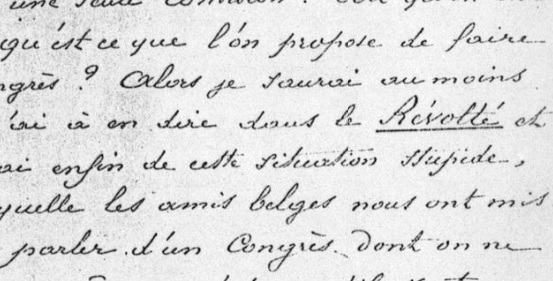 une seule
qu'est ce que l'on propose de faire
ngrès? Alors je saurai au moins
'ai à en dire dans le Révolté et
ai enfin de cette situation stupide,
quelle les amis belges nous ont mis
parler d'un Congrès dont on ne